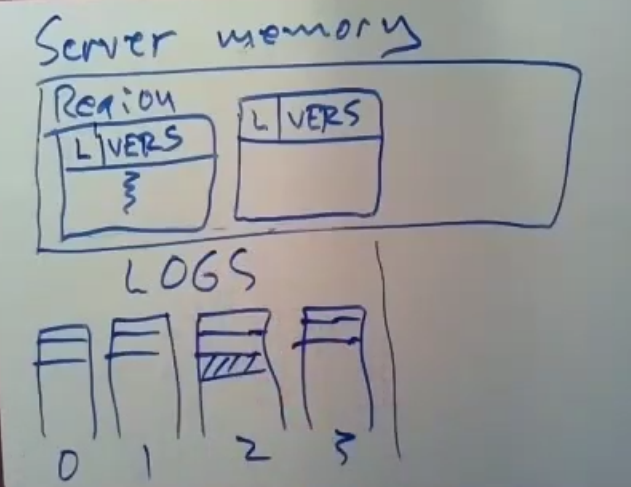 Server memory
Region
L VERS L VERS
LOGS
0 1 2 3